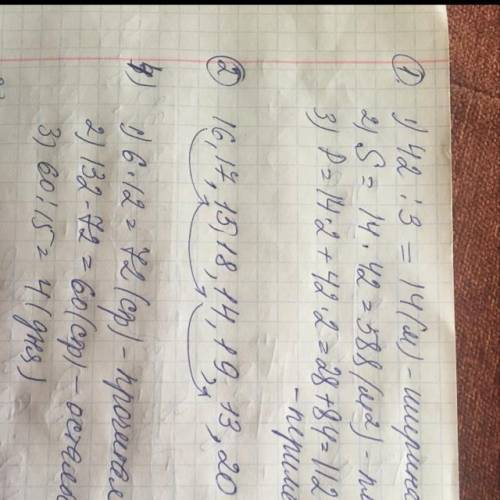 ① 1) 42 : 3 = 14 (м) - ширина
2) S = 14 · 42 = 588 (м²) -
3) P = 14·2 + 42·2 = 28+84=112
② 16, 17, 15, 18, 14, 19, 13, 20
4) 1) 6·12 = 72 (ср) -
2) 132 - 72 = 60 (ср) -
3) 60 : 15 = 4 (дня)